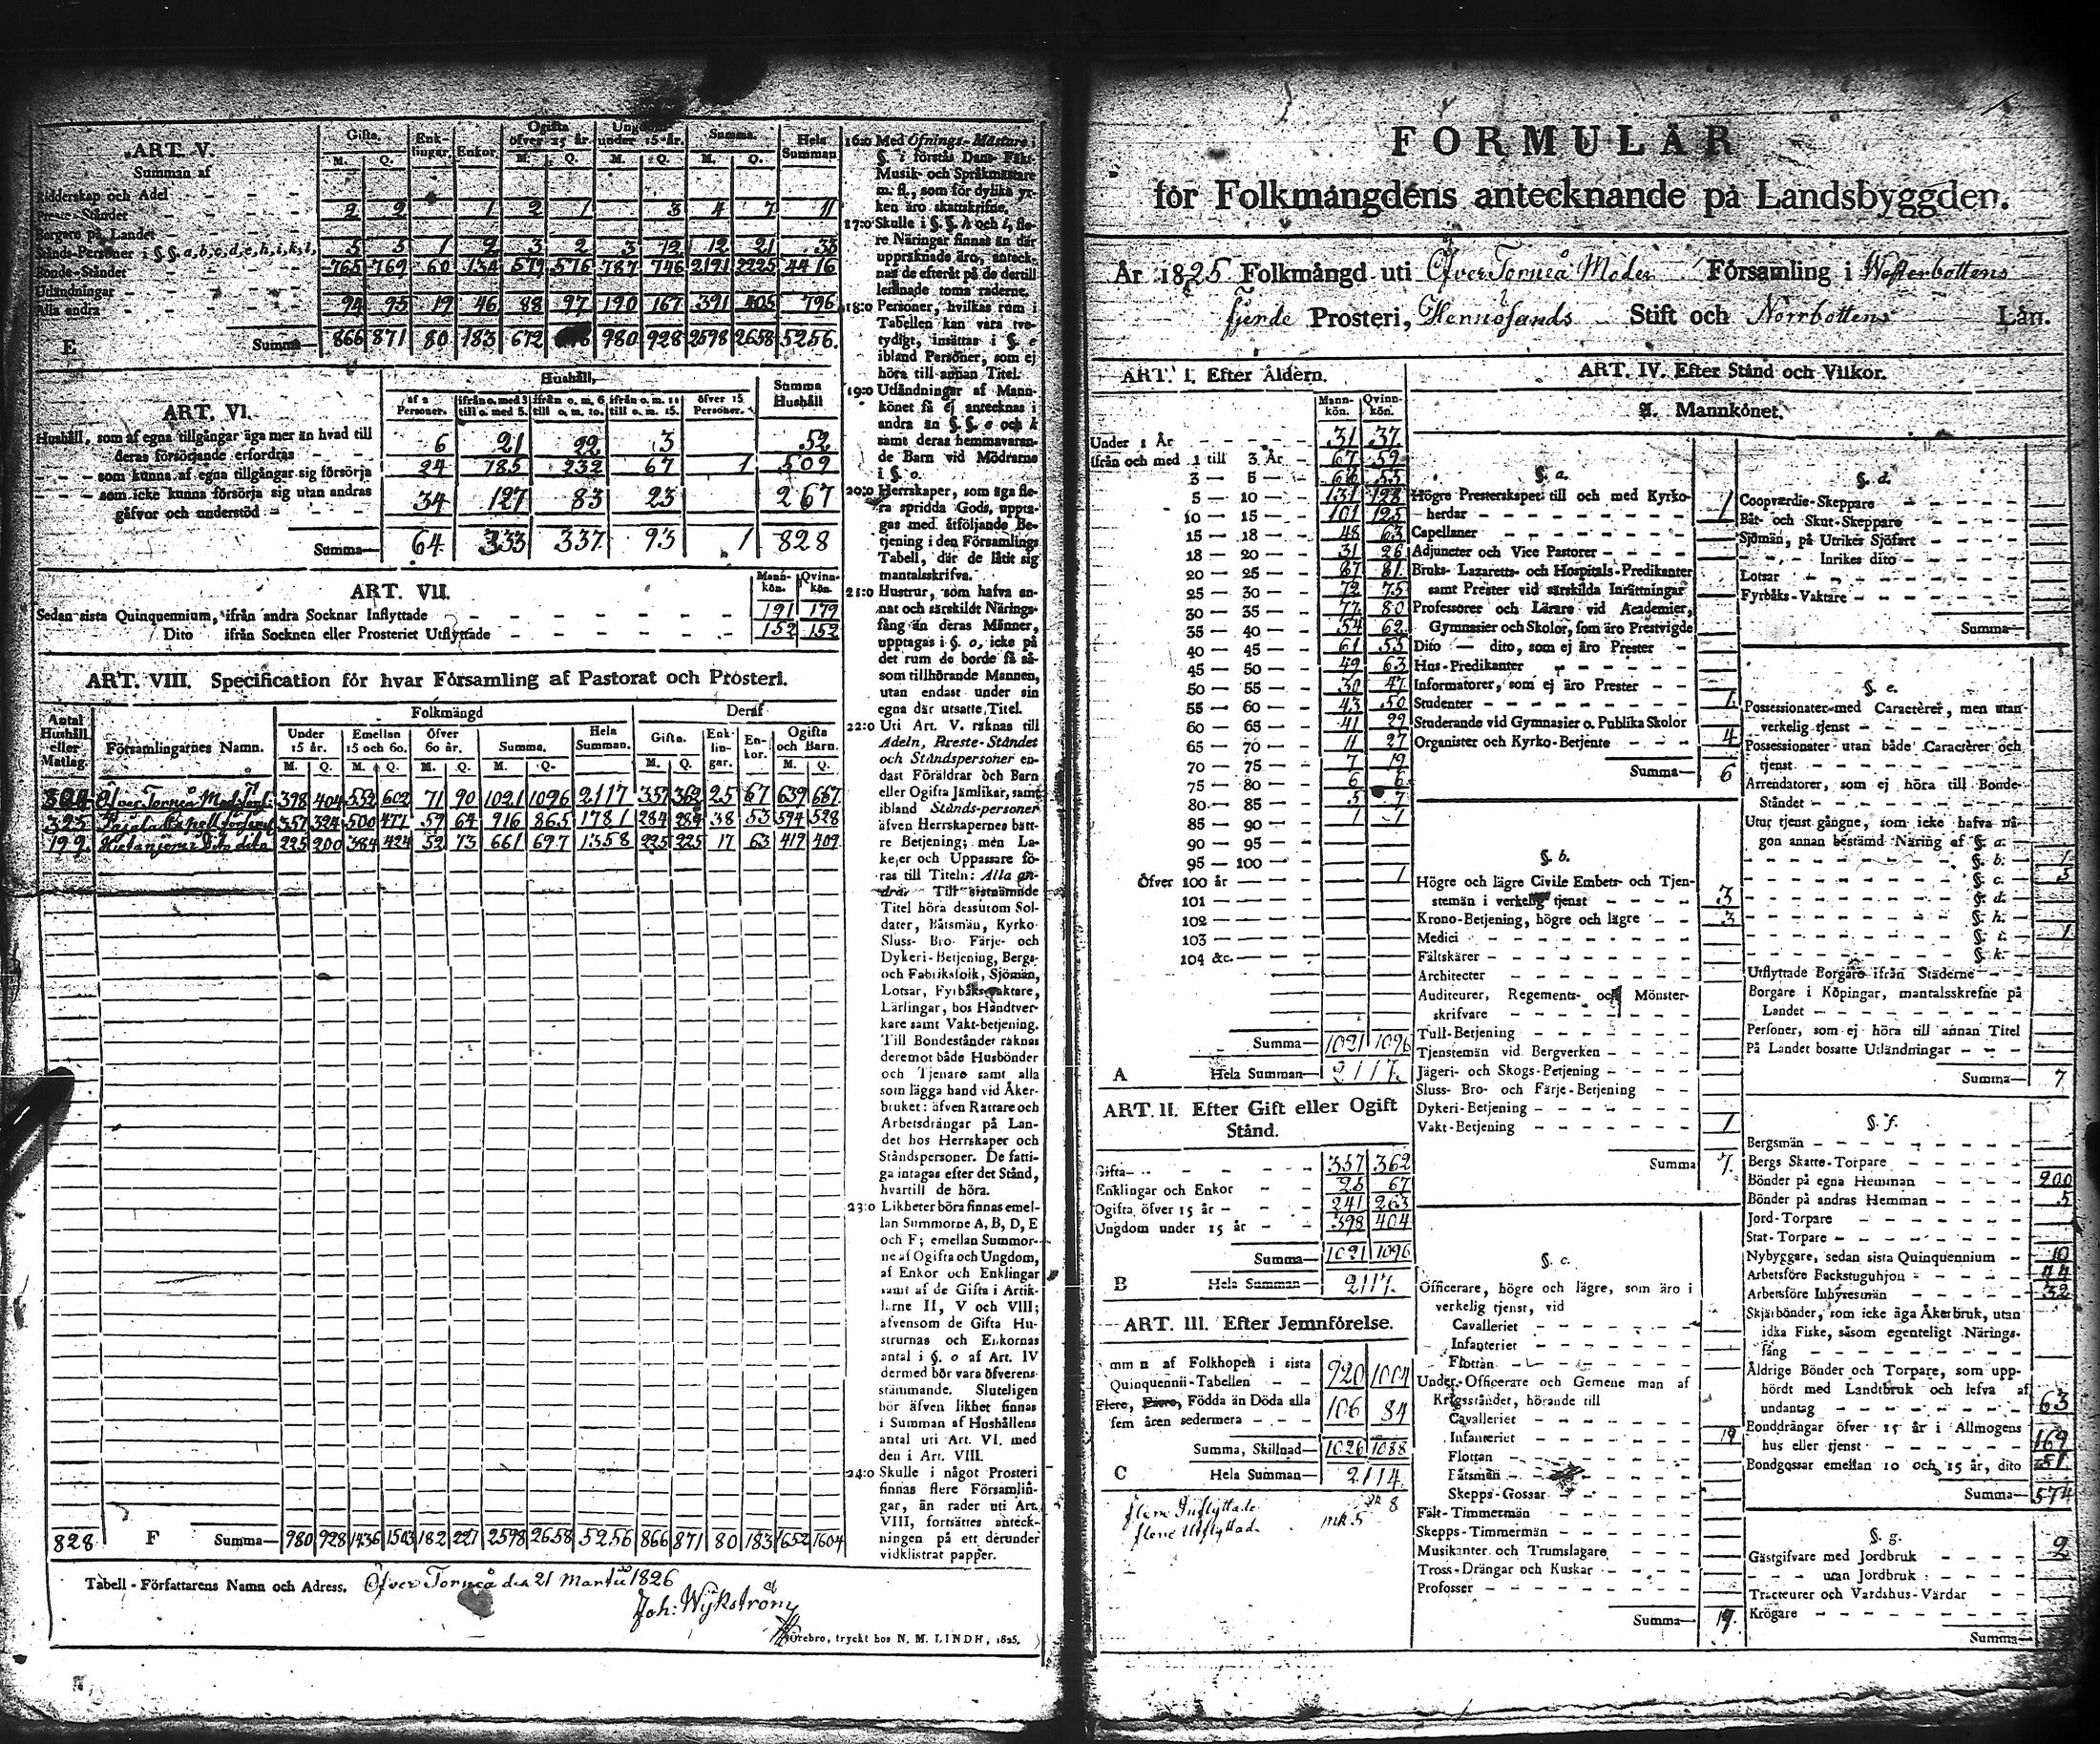 ART. V.
Summan af
Gifta. Enk-lingar. Enkor. Ogifta öfver 15 år. Ungdom under 15 år. Summa. Hela Summan
M. Q. M. Q. M. Q. M. Q.
Ridderskap och Adel
Preste-Ståndet 2 2 1 2 1 3 4 7 11
Borgare på Landet
Stånds-Personer i §.§. a, b, c, d, e, h, i, k, l, 5 5 1 2 3 2 3 12 12 21 33
Bonde-Ståndet 765 769 60 134 579 576 787 746 2191 2225 4416
Utländningar
Alla andra 94 95 19 46 88 97 190 167 391 405 796
E Summa 866 871 80 183 672 980 928 2598 2658 5256.
ART. VI.
Hushåll, Summa Hushåll
af 2 Personer. ifrån o. med 3 till o. med 5. ifrån o. m. 6 till o. m. 10. ifrån o. m. 11 till o. m. 15. öfver 15 Personer.
Hushåll, som af egna tillgångar äga mer än hvad till
deras försörjande erfordras 6 21 22 3 52
- - - som kunna af egna tillgångar sig försörja 24 185 232 67 1 509
- - - som icke kunna försörja sig utan andras
gåfvor och understöd 34 127 83 23 267
Summa 64. 333 337. 93 1 828
ART. VII.
Mann-kön. Qvinn-kön.
Sedan sista Quinquennium, ifrån andra Socknar Inflyttade 191 179
Dito ifrån Socknen eller Prosteriet Utflyttade 152 152
ART. VIII. Specification för hvar Församling af Pastorat och Prosteri.
Antal Hushåll eller Matlag. Församlingarnes Namn. Folkmängd Deraf
Under 15 år. Emellan 15 och 60. Öfver 60 år. Summa. Hela Summan. Gifta. Enk-lin-gar. En-kor. Ogifta och Barn.
M. Q. M. Q. M. Q. M. Q. M. Q. M. Q.
304 Öfver Torneå Mod. förs. 398 404 552 602 71 90 1021 1096 2117 357 362 25 67 639 667
325 Pajala Capell församl. 357 324 500 477 59 64 916 865 1781 284 284 38 53 594 528
199. Hietaniemi Dito dito 225 200 384 424 52 73 661 697 1358 225 225 17 63 419 409
828 F Summa 980 928 1436 1503 182 227 2598 2658 5256 866 871 80 183 1652 1604
Tabell-Författarens Namn och Adress. Öfver Torneå den 21 Martii 1826
Joh: Wijkström
Örebro, tryckt hos N. M. LINDH, 1825.
16:o Med Öfnings-Mästare i
§. i förstås Dans- Fäkt-
Musik- och Språkmästare
m. fl., som för dylika yr-
ken äro skattskrifne.
17:o Skulle i §. §. h och l, fle-
re Näringar finnas än där
uppräknade äro, anteck-
nas de efteråt på de dertill
lemnade toma raderne.
18:o Personer, hvilkas rum i
Tabellen kan vara tve-
tydigt, insättas i §. e
ibland Personer, som ej
höra till annan Titel.
19:o Utländningar af Mann-
könet få ej antecknas i
andra än §. §. e och k
samt deras hemmavaran-
de Barn vid Mödrarne
i §. o.
20:o Herrskaper, som äga fle-
ra spridda Gods, uppta-
gas med åtföljande Be-
tjening i den Församlings
Tabell, där de låtit sig
mantalsskrifva.
21:o Hustrur, som hafva an-
nat och särskildt Närings-
fång än deras Männer,
upptagas i §. o, icke på
det rum de borde få så-
som tillhörande Mannen,
utan endast under sin
egna där utsatte Titel.
22:o Uti Art. V. räknas till
Adeln, Preste-Ståndet
och Ståndspersoner en-
dast Föräldrar och Barn
eller Ogifta Jämlikar, samt
ibland Stånds-personer
äfven Herrskapernes bätt-
re Betjening; men La-
kejer och Uppassare fö-
ras till Titeln: Alla an-
dra. Till sistnämnde
Titel höra dessutom Sol-
dater, Båtsmän, Kyrko-
Sluss- Bro- Färje- och
Dykeri-Betjening, Bergs-
och Fabriksfolk, Sjömän,
Lotsar, Fyrbåks-vaktare,
Lärlingar, hos Handtver-
kare samt Vakt-betjening.
Till Bondeståndet räknas
deremot både Husbönder
och Tjenare samt alla
som lägga hand vid Åker-
bruket: äfven Rättare och
Arbetsdrängar på Lan-
det hos Herrskaper och
Ståndspersoner. De fatti-
ga intagas efter det Stånd,
hvartill de höra.
23:o Likheter böra finnas emel-
lan Summorne A, B, D, E
och F; emellan Summor-
ne af Ogifta och Ungdom,
af Enkor och Enklingar
samt af de Gifta i Artik-
larne II, V och VIII;
äfvensom de Gifta Hu-
strurnas och Enkornas
antal i §. o af Art. IV
dermed bör vara öfverens-
stämmande. Sluteligen
bör äfven likhet finnas
i Summan af Hushållens
antal uti Art. VI. med
den i Art. VIII.
24:o Skulle i något Prosteri
finnas flere Församlin-
gar, än rader uti Art.
VIII, fortsättes anteck-
ningen på ett derunder
vidklistrat papper.
FORMULÄR
för Folkmängdens antecknande på Landsbyggden.
År 1825 Folkmängd uti Öfver Torneå Moder Församling i Westerbottens
fjerde Prosteri, Hernösands Stift och Norrbottens Län.
ART. I. Efter Åldern.
Mann-kön. Qvinn-kön.
Under 1 År 31 37
ifrån och med 1 till 3 År 67 59
3 — 5 66 53
5 — 10 131 128
10 — 15 101 125
15 — 18 48 63
18 — 20 31 26
20 — 25 87 81
25 — 30 72 75
30 — 35 77 80
35 — 40 54 62
40 — 45 61 53
45 — 50 49 63
50 — 55 30 47
55 — 60 43 50
60 — 65 41 29
65 — 70 11 27
70 — 75 7 19
75 — 80 6 6
80 — 85 5 7
85 — 90 1 1
90 — 95
95 — 100
Öfver 100 år 1
101
102
103
104 &c.
Summa 1021 1096
A Hela Summan 2117.
ART. II. Efter Gift eller Ogift
Stånd.
Gifta 357 362
Enklingar och Enkor 25 67
Ogifta öfver 15 år 241 263
Ungdom under 15 år 398 404
Summa 1021 1096
B Hela Summan 2117.
ART. III. Efter Jemnförelse.
mm n af Folkhopen i sista
Quinquennii-Tabellen 920 1004
Flere, Färre, Födda än Döda alla
fem åren sedermera 106 84
Summa, Skillnad 1026 1088
C Hela Summan 2114.
flere Inflyttade 8
flere Utflyttad. mk. 5
ART. IV. Efter Stånd och Vilkor.
A. Mannkönet.
§. a.
Högre Presterskapet till och med Kyrko-
herdar 1
Capellaner
Adjuncter och Vice Pastorer
Bruks- Lazaretts- och Hospitals-Predikanter
samt Prester vid särskilda Inrättningar
Professorer och Lärare vid Academier,
Gymnasier och Skolor, som äro Prestvigde
Dito — dito, som ej äro Prester
Hus-Predikanter
Informatorer, som ej äro Prester
Studenter 1.
Studerande vid Gymnasier o. Publika Skolor
Organister och Kyrko-Betjente 4
Summa 6
§. b.
Högre och lägre Civile Embets- och Tjen-
stemän i verkelig tjenst 3
Krono-Betjening, högre och lägre 3
Medici
Fältskärer
Architecter
Auditeurer, Regements- och Mönster-
skrifvare
Tull-Betjening
Tjenstemän vid Bergverken
Jägeri- och Skogs-Betjening
Sluss- Bro- och Färje-Betjening
Dykeri-Betjening
Vakt-Betjening 1
Summa 7.
§. c.
Officerare, högre och lägre, som äro i
verkelig tjenst, vid
Cavalleriet
Infanteriet
Flottan
Under-Officerare och Gemene man af
Krigsståndet, hörande till
Cavalleriet
Infanteriet 19
Flottan
Båtsmän
Skepps-Gossar
Fält-Timmermän
Skepps-Timmermän
Musikanter och Trumslagare
Tross-Drängar och Kuskar
Profosser
Summa 19.
§. d.
Coopværdie-Skeppare
Båt- och Skut-Skeppare
Sjömän, på Utrikes Sjöfart
- - - Inrikes dito
Lotsar
Fyrbåks-Vaktare
Summa
§. e.
Possessionater med Caractèrer, men utan
verkelig tjenst
Possessionater utan både Caractèrer och
tjenst
Arrendatorer, som ej höra till Bonde-
Ståndet
Utur tjenst gångne, som icke hafva nå-
gon annan bestämd Näring af §. a.
§. b. 1
§. c. 5
§. d.
§. h.
§. i. 1
§. k.
Utflyttade Borgare ifrån Städerne
Borgare i Köpingar, mantalsskrefne på
Landet
Personer, som ej höra till annan Titel
På Landet bosatte Utländningar
Summa 7
§. f.
Bergsmän
Bergs Skatte-Torpare
Bönder på egna Hemman 200
Bönder på andras Hemman 5
Jord-Torpare
Stat-Torpare
Nybyggare, sedan sista Quinquennium 10
Arbetsföre Backstuguhjon 44
Arbetsföre Inhysesmän 32
Skjärbönder, som icke äga Åkerbruk, utan
idka Fiske, såsom egenteligt Närings-
fång
Åldrige Bönder och Torpare, som upp-
hördt med Landtbruk och lefva af
undantag 63
Bonddrängar öfver 15 år i Allmogens
hus eller tjenst 169
Bondgossar emellan 10 och 15 år, dito 51
Summa 574
§. g.
Gästgifvare med Jordbruk 2
- - - utan Jordbruk
Tracteurer och Värdshus-Värdar
Krögare
Summa